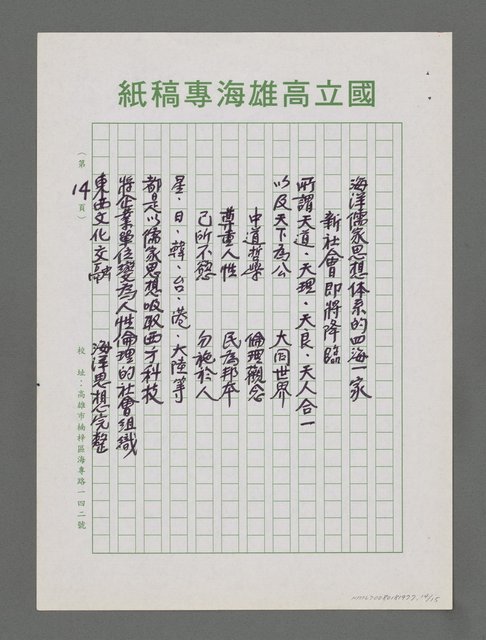 國立高雄海專稿紙
海洋儒家思想体系的四海一家
新社會即將降臨
所謂天道、天理、天良、天人合一
以及天下為公 大同世界
中道哲學 倫理觀念
尊重人性 民為邦本
己所不慾 勿施於人
星、日、韓、台、港、大陸等
都是以儒家思想吸取西方科技
將企業單位變為人性倫理的社會組織
東西文化交融 海洋思想完整
（第14頁）
校址：高雄市楠梓區海專路一四二號
NMTL20080181977, 14/15